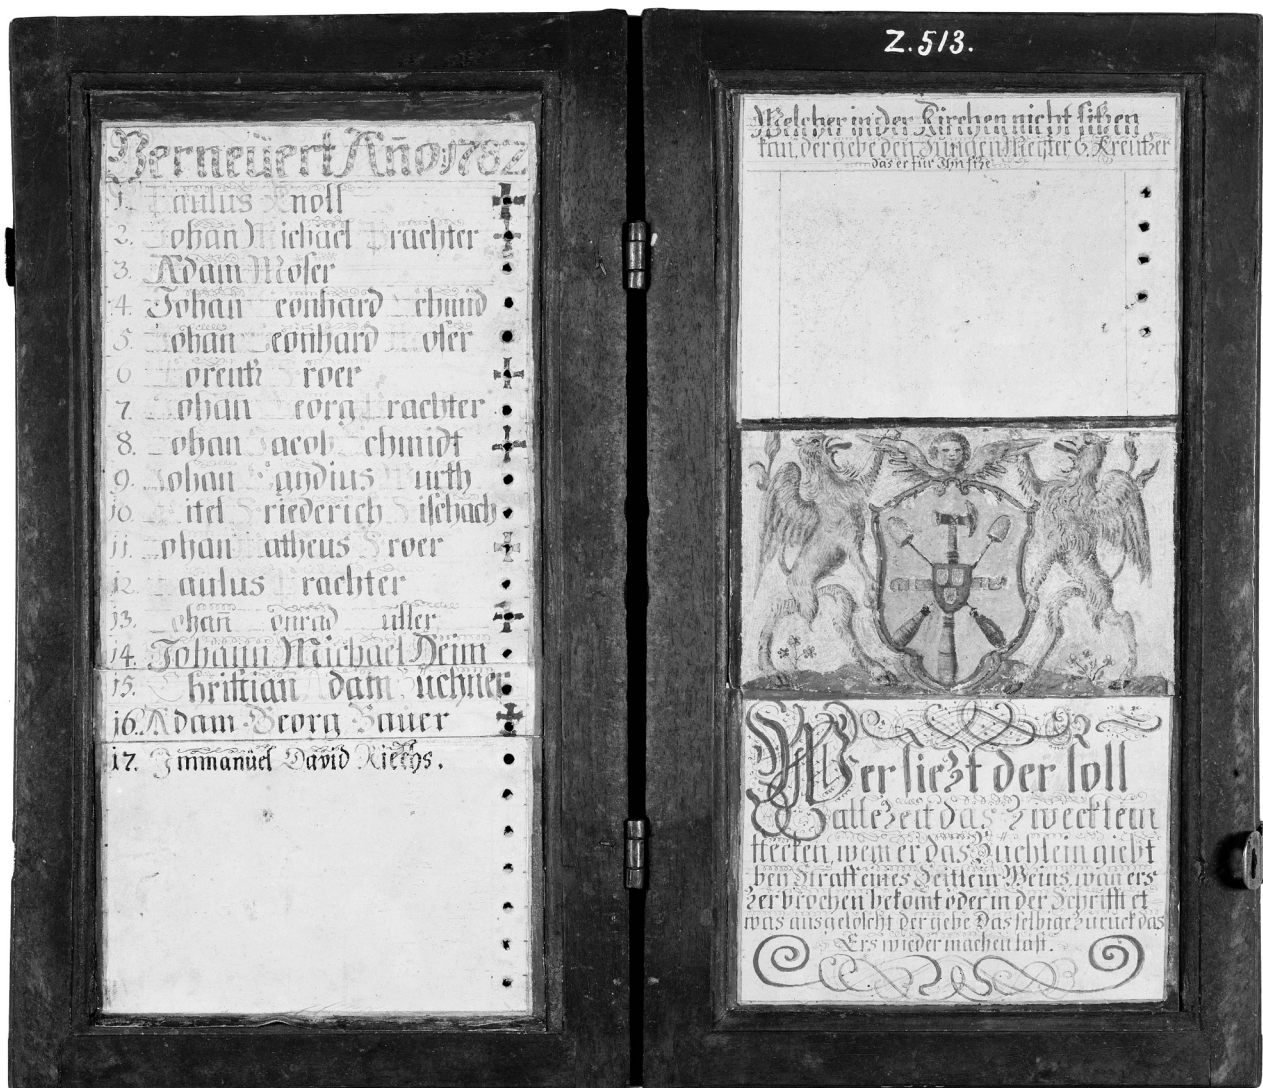 Z.513.
Verneüert Año 1782
1. Paulus Knoll
2. Johan Michäel Trachter
3. Adam Moser
4. Johan Leonhard Schmid
5. Johan Leonhard Moser
6 Lorentz Froer
7. Johan Georg Trachter
8. Johan Jacob Schmidt
9. Johan Wurth
10. Eitel Friederich Fischach
11. Johan Matheus Froer
12. Paulus Trachter
13. Johañ Conrad
14. Johann Michael Deim
15. Christian Adam Büchner
16. Adam Georg Bauer
17. Immanüel David Riechs.
Welcher in der Kirchen nicht sitzen
kan, der gebe den Jungen Meister 6. Kreutzer
das er für Ihn sitze
Wer siezt der soll
allezeit das Zwecklein
stecken, wem er das Büchlein giebt
beÿ Straff eines Seitlein Weins, wan ers
zerbrochen bekomt oder in der Schrifft et
was ausgelöscht der gebe Dasselbige zurück das
Ers wieder machen last.